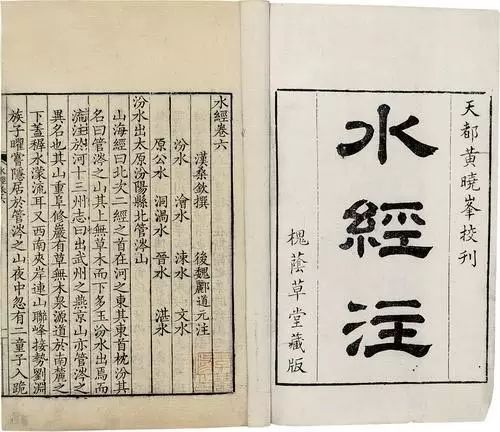 天都黃曉峯校刊
水經注
槐蔭草堂藏版
水經卷六
漢桑欽撰 後魏酈道元注
汾水 澮水 涑水 文水
原公水 洞渦水 晉水 湛水
汾水出太原汾陽縣北管涔山
山海經曰北次二經之首在河之東其東首枕汾其
名曰管涔之山其上無草木而下多玉汾水出焉而
流注於河十三州志曰出武州之燕京山亦管涔之
異名也其山重阜修巖有草無木泉源導於南麓之
下蓋稺水濛流耳又西南夾岸連山聯峰接勢劉淵
族子曜嘗隱居於管涔之山夜中忽有二童子入跪